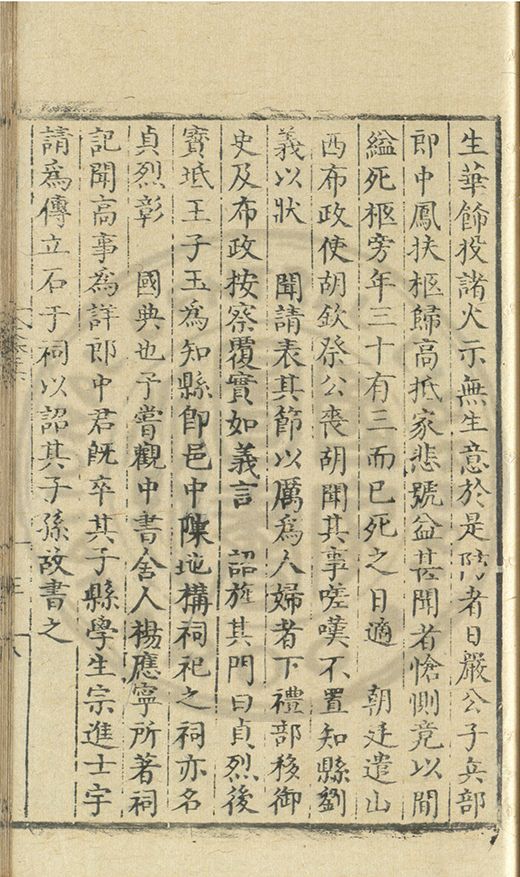 生華飾投諸火示無生意於是防者日嚴公子兵部
郎中鳳扶柩歸高抵家悲號益甚聞者愴惻竟以間
縊死柩旁年三十有三而已死之日適　朝廷遣山
西布政使胡欽祭公喪胡聞其事嗟嘆不置知縣劉
義以狀　聞請表其節以厲為人婦者下禮部移御
史及布政按察覆實如義言　詔旌其門曰貞烈後
寶坻王子玉為知縣卽邑中陳地構祠祀之祠亦名
貞烈彰　國典也予嘗觀中書舍人楊應寧所著祠
記聞高事為詳郎中君旣卒其子縣學生宗進士宇
請為傳立石于祠以詔其子孫故書之